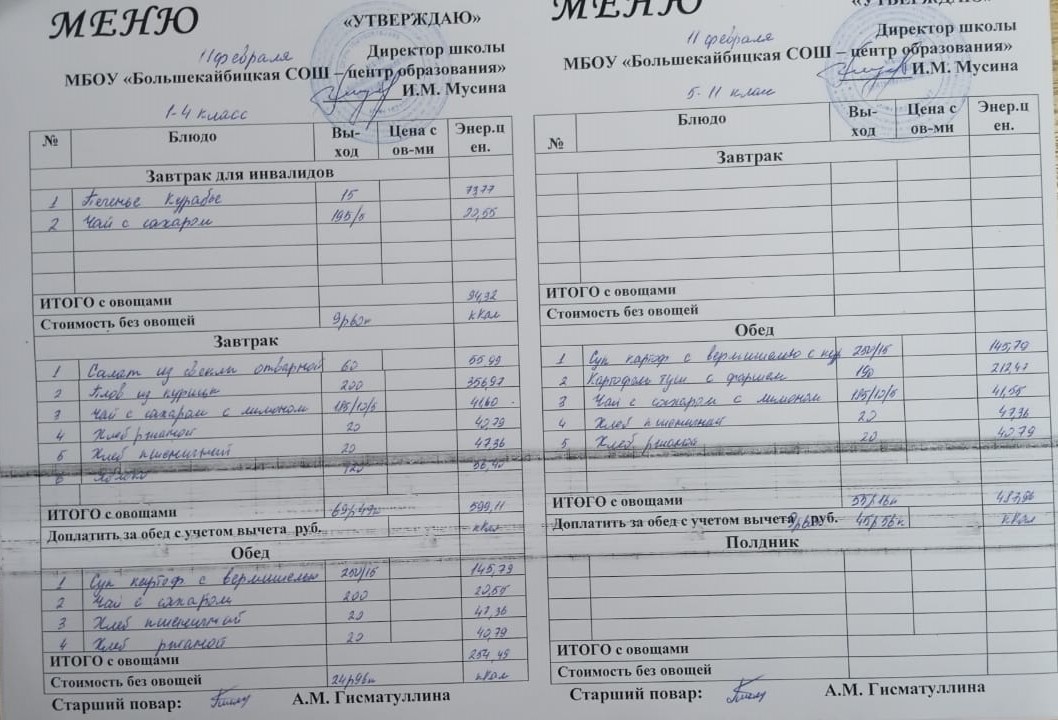 МЕНЮ
«УТВЕРЖДАЮ»
11 февраля
Директор школы
МБОУ «Большекайбицкая СОШ – центр образования»
И.М. Мусина
1-4 класс
№ Блюдо Вы-ход Цена с ов-ми Энер.ц ен.
Завтрак для инвалидов
1 Печенье Курабье 15
2 Чай с сахаром 195/5 20,55
ИТОГО с овощами 94,32
Стоимость без овощей 9р62к кКал
Завтрак
1 Салат из свеклы отварной 60 55,99
2 Плов из курицы 200 356,97
3 Чай с сахаром с лимоном 195/10/5 41,60
4 Хлеб ржаной 20 40,79
5 Хлеб пшеничный 20 47,36
6 Яблоко 120 56,40
ИТОГО с овощами 69р49к 599,11
Доплатить за обед с учетом вычета руб. кКал
Обед
1 Суп картоф с вермишелью 250/15 145,79
2 Чай с сахаром 200 20,55
3 Хлеб пшеничный 20 47,36
4 Хлеб ржаной 20 40,79
ИТОГО с овощами 254,49
Стоимость без овощей 24р96к кКал
Старший повар: А.М. Гисматуллина
МЕНЮ
«УТВЕРЖДАЮ»
11 февраля
Директор школы
МБОУ «Большекайбицкая СОШ – центр образования»
И.М. Мусина
5-11 класс
№ Блюдо Вы-ход Цена с ов-ми Энер.ц ен.
Завтрак
ИТОГО с овощами
Стоимость без овощей
Обед
1 Суп картоф с вермишелью с кур 250/15 145,79
2 Картофель туш с фаршем 190 212,47
3 Чай с сахаром с лимоном 195/10/5 41,55
4 Хлеб пшеничный 20 47,36
5 Хлеб ржаной 20 40,79
ИТОГО с овощами 55р16к 487,96
Доплатить за обед с учетом вычета руб. 45р56к. кКал
Полдник
ИТОГО с овощами
Стоимость без овощей
Старший повар: А.М. Гисматуллина